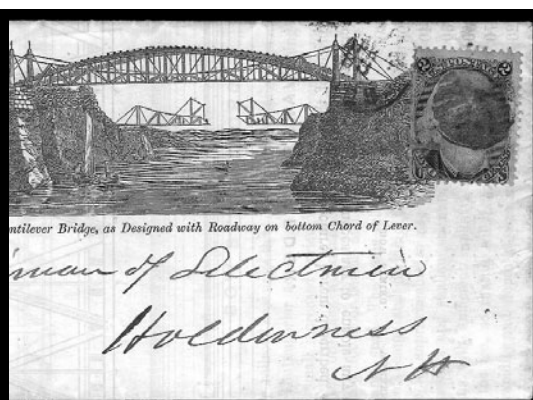 ntilever Bridge, as Designed with Roadway on bottom Chord of Lever.
man of Selectmen
Holderness
N H